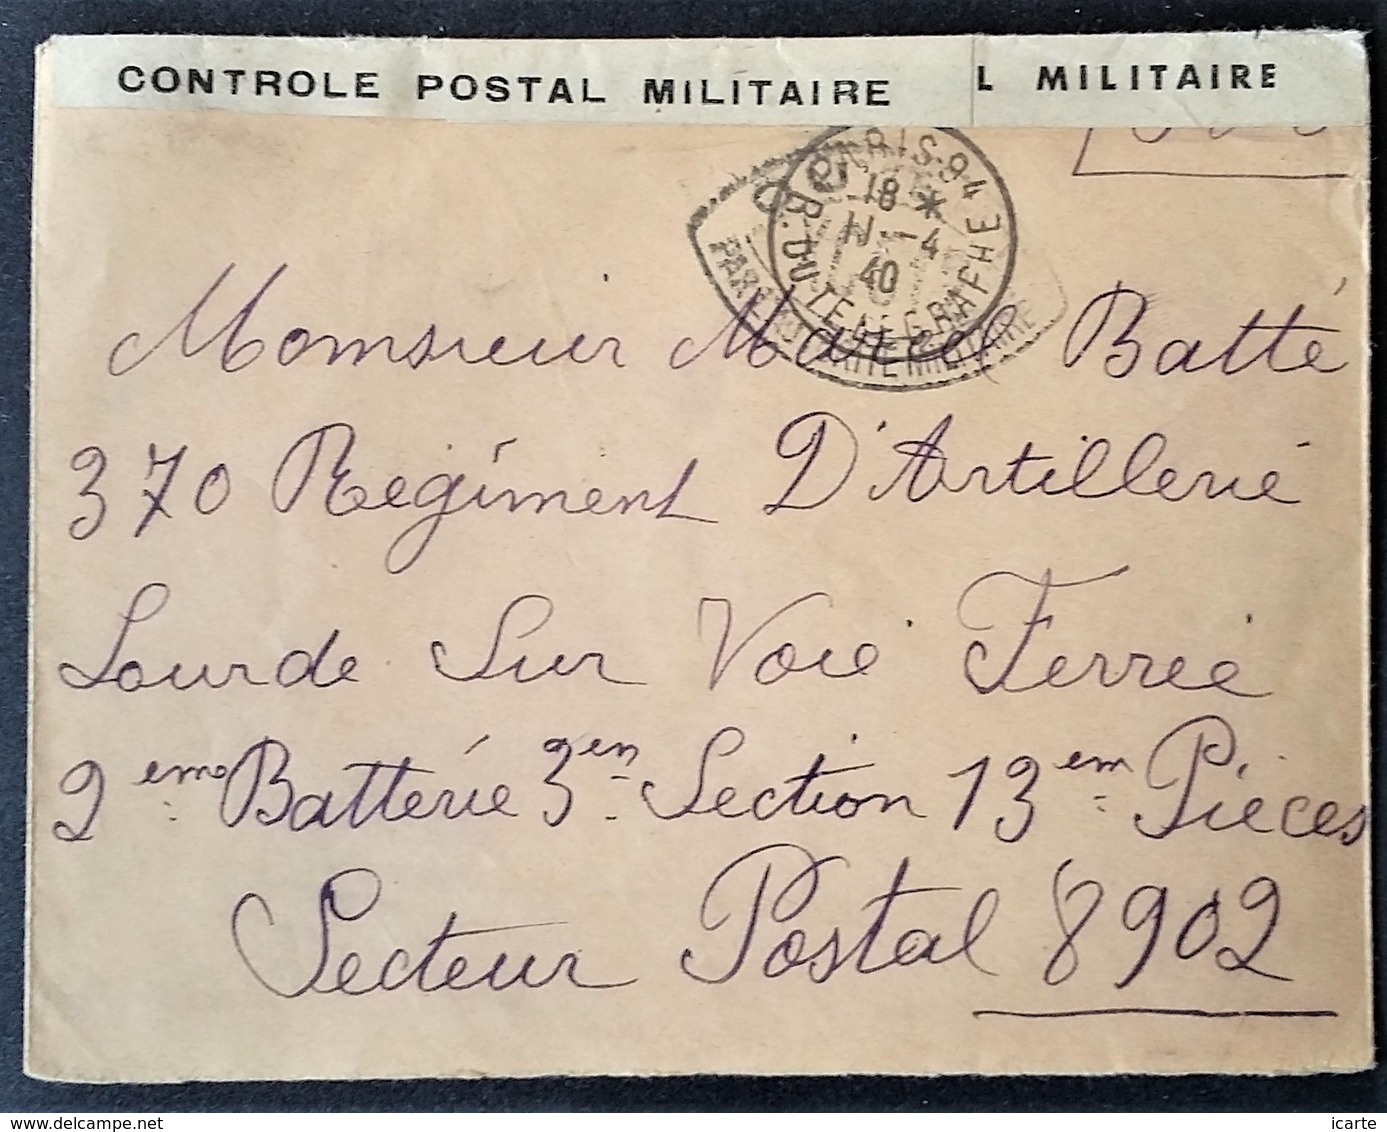 CONTROLE POSTAL MILITAIRE L MILITAIRE
PARIS·94
R. DU TELEGRAPHE
18 *
-4
40
OUVERT
PAR L'AUTORITE MILITAIRE
Monsieur Marcel Batté
370 Regiment D'Artillerié
Lourde Sur Voie Ferreé
2 eme Batterie 3 em Section 13 em Piéces
Secteur Postal 8902
delcampe.net
icarte